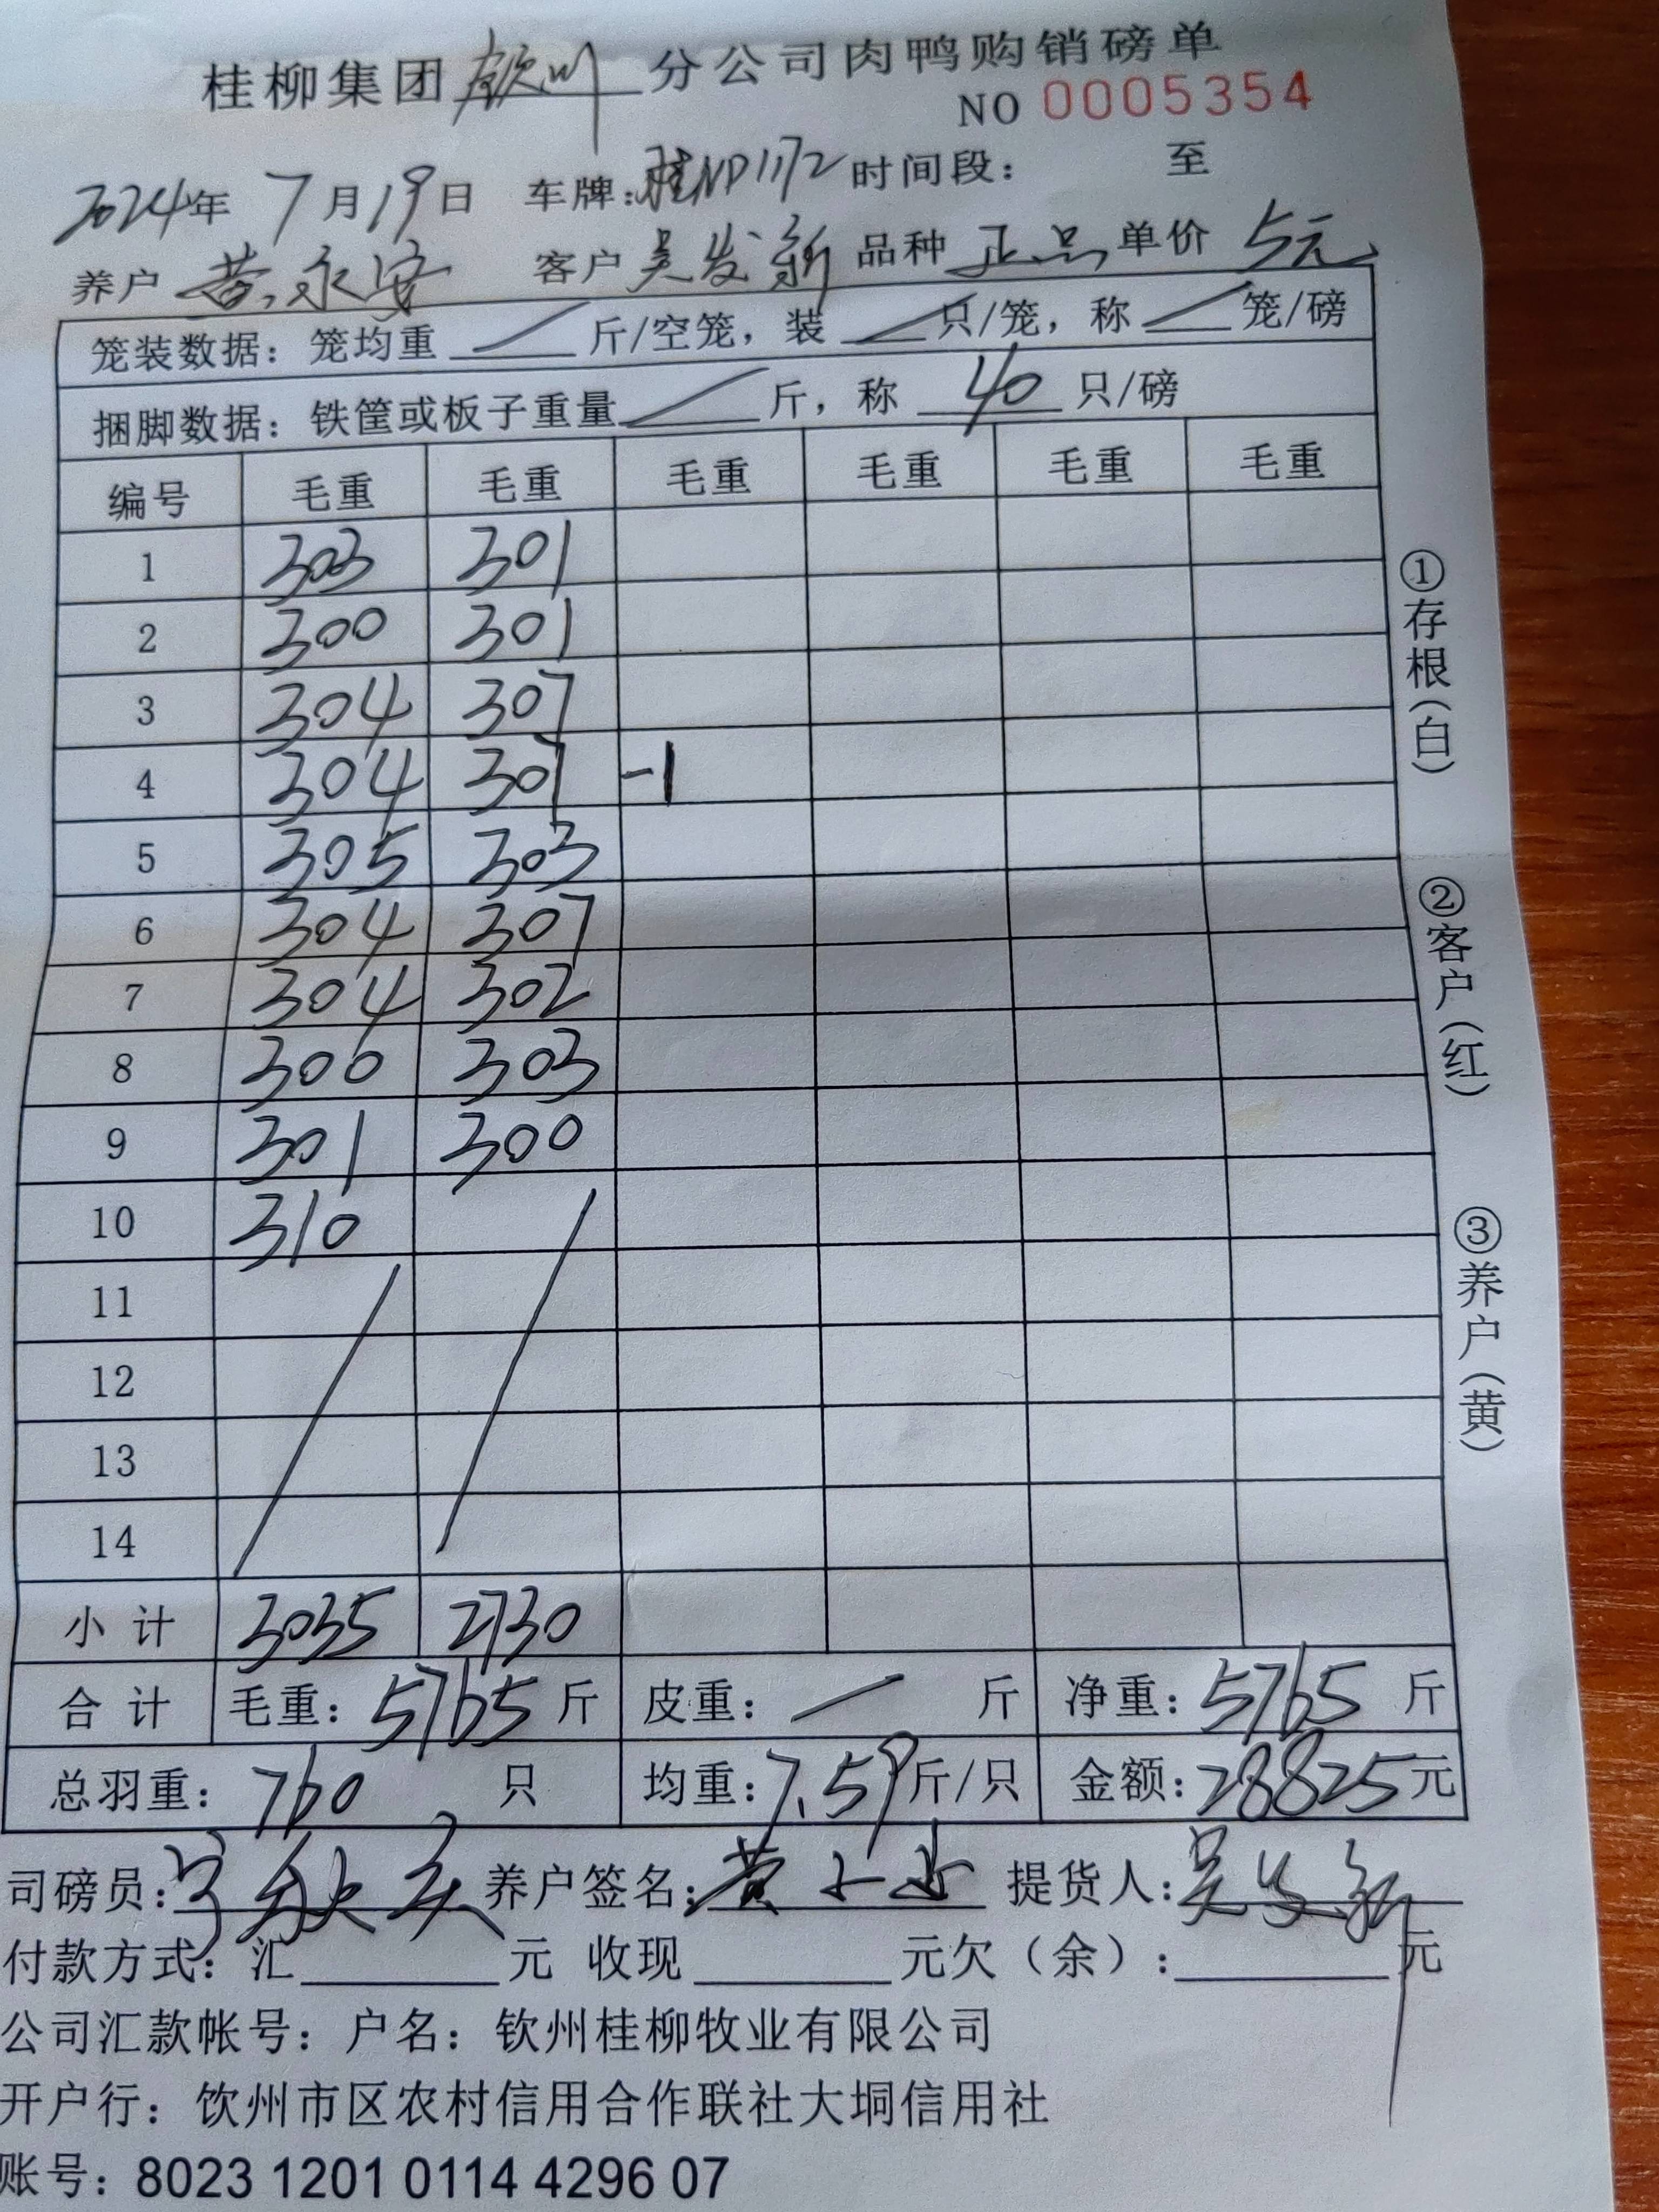 桂柳集团钦州分公司肉鸭购销磅单
NO 0005354
2024年 7月19日 车牌:桂ND1172 时间段: 至
养户 黄永安 客户 吴发新 品种 正品 单价 5元
笼装数据: 笼均重 / 斤/空笼, 装 / 只/笼, 称 / 笼/磅
捆脚数据: 铁筐或板子重量 / 斤, 称 40 只/磅
编号 毛重 毛重 毛重 毛重 毛重 毛重
1 303 301
2 300 301
3 304 307
4 304 307 -1
5 305 303
6 304 307
7 304 302
8 300 303
9 301 300
10 310
11
12
13
14
小计 3035 2730
合计 毛重: 5765 斤 皮重: / 斤 净重: 5765 斤
总羽重: 760 只 均重: 7.59 斤/只 金额: 28825 元
司磅员: 养户签名: 黄 提货人: 吴发新
付款方式: 汇 元 收现 元欠(余): 元
公司汇款帐号: 户名: 钦州桂柳牧业有限公司
开户行: 饮州市区农村信用合作联社大垌信用社
账号: 8023 1201 0114 4296 07
①存根(白)
②客户(红)
③养户(黄)